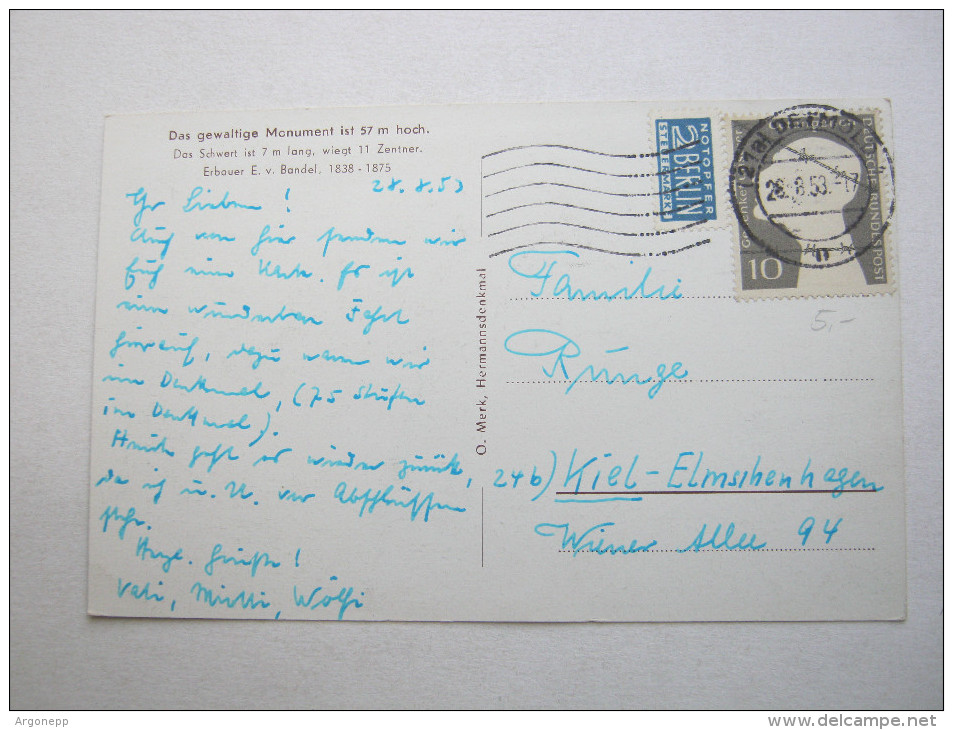 Das gewaltige Monument ist 57 m hoch.
Das Schwert ist 7 m lang, wiegt 11 Zentner.
Erbauer E. v. Bandel, 1838 - 1875
28.8.53
Ihr Lieben!
Auf von hier senden wir
Euch eine Karte. Es ist
eine wunderbare Fahrt
hierauf, dazu waren wir
im Denkmal, (75 Stufen
im Denkmal).
Heute geht es wieder zurück,
da ich u. U. vor Abschlüssen
stehe.
Herzl. Grüße!
Vati, Mutti, Wölfi
O. Merk, Hermannsdenkmal
NOTOPFER
2 BERLIN
STEUERMARKE
(21a) DETMOLD
28.8.53.-17
DEUTSCHE BUNDESPOST
10
5,-
Familie
Runge
24b) Kiel-Elmschenhagen
Wiener Allee 94
Argonepp
www.delcampe.net